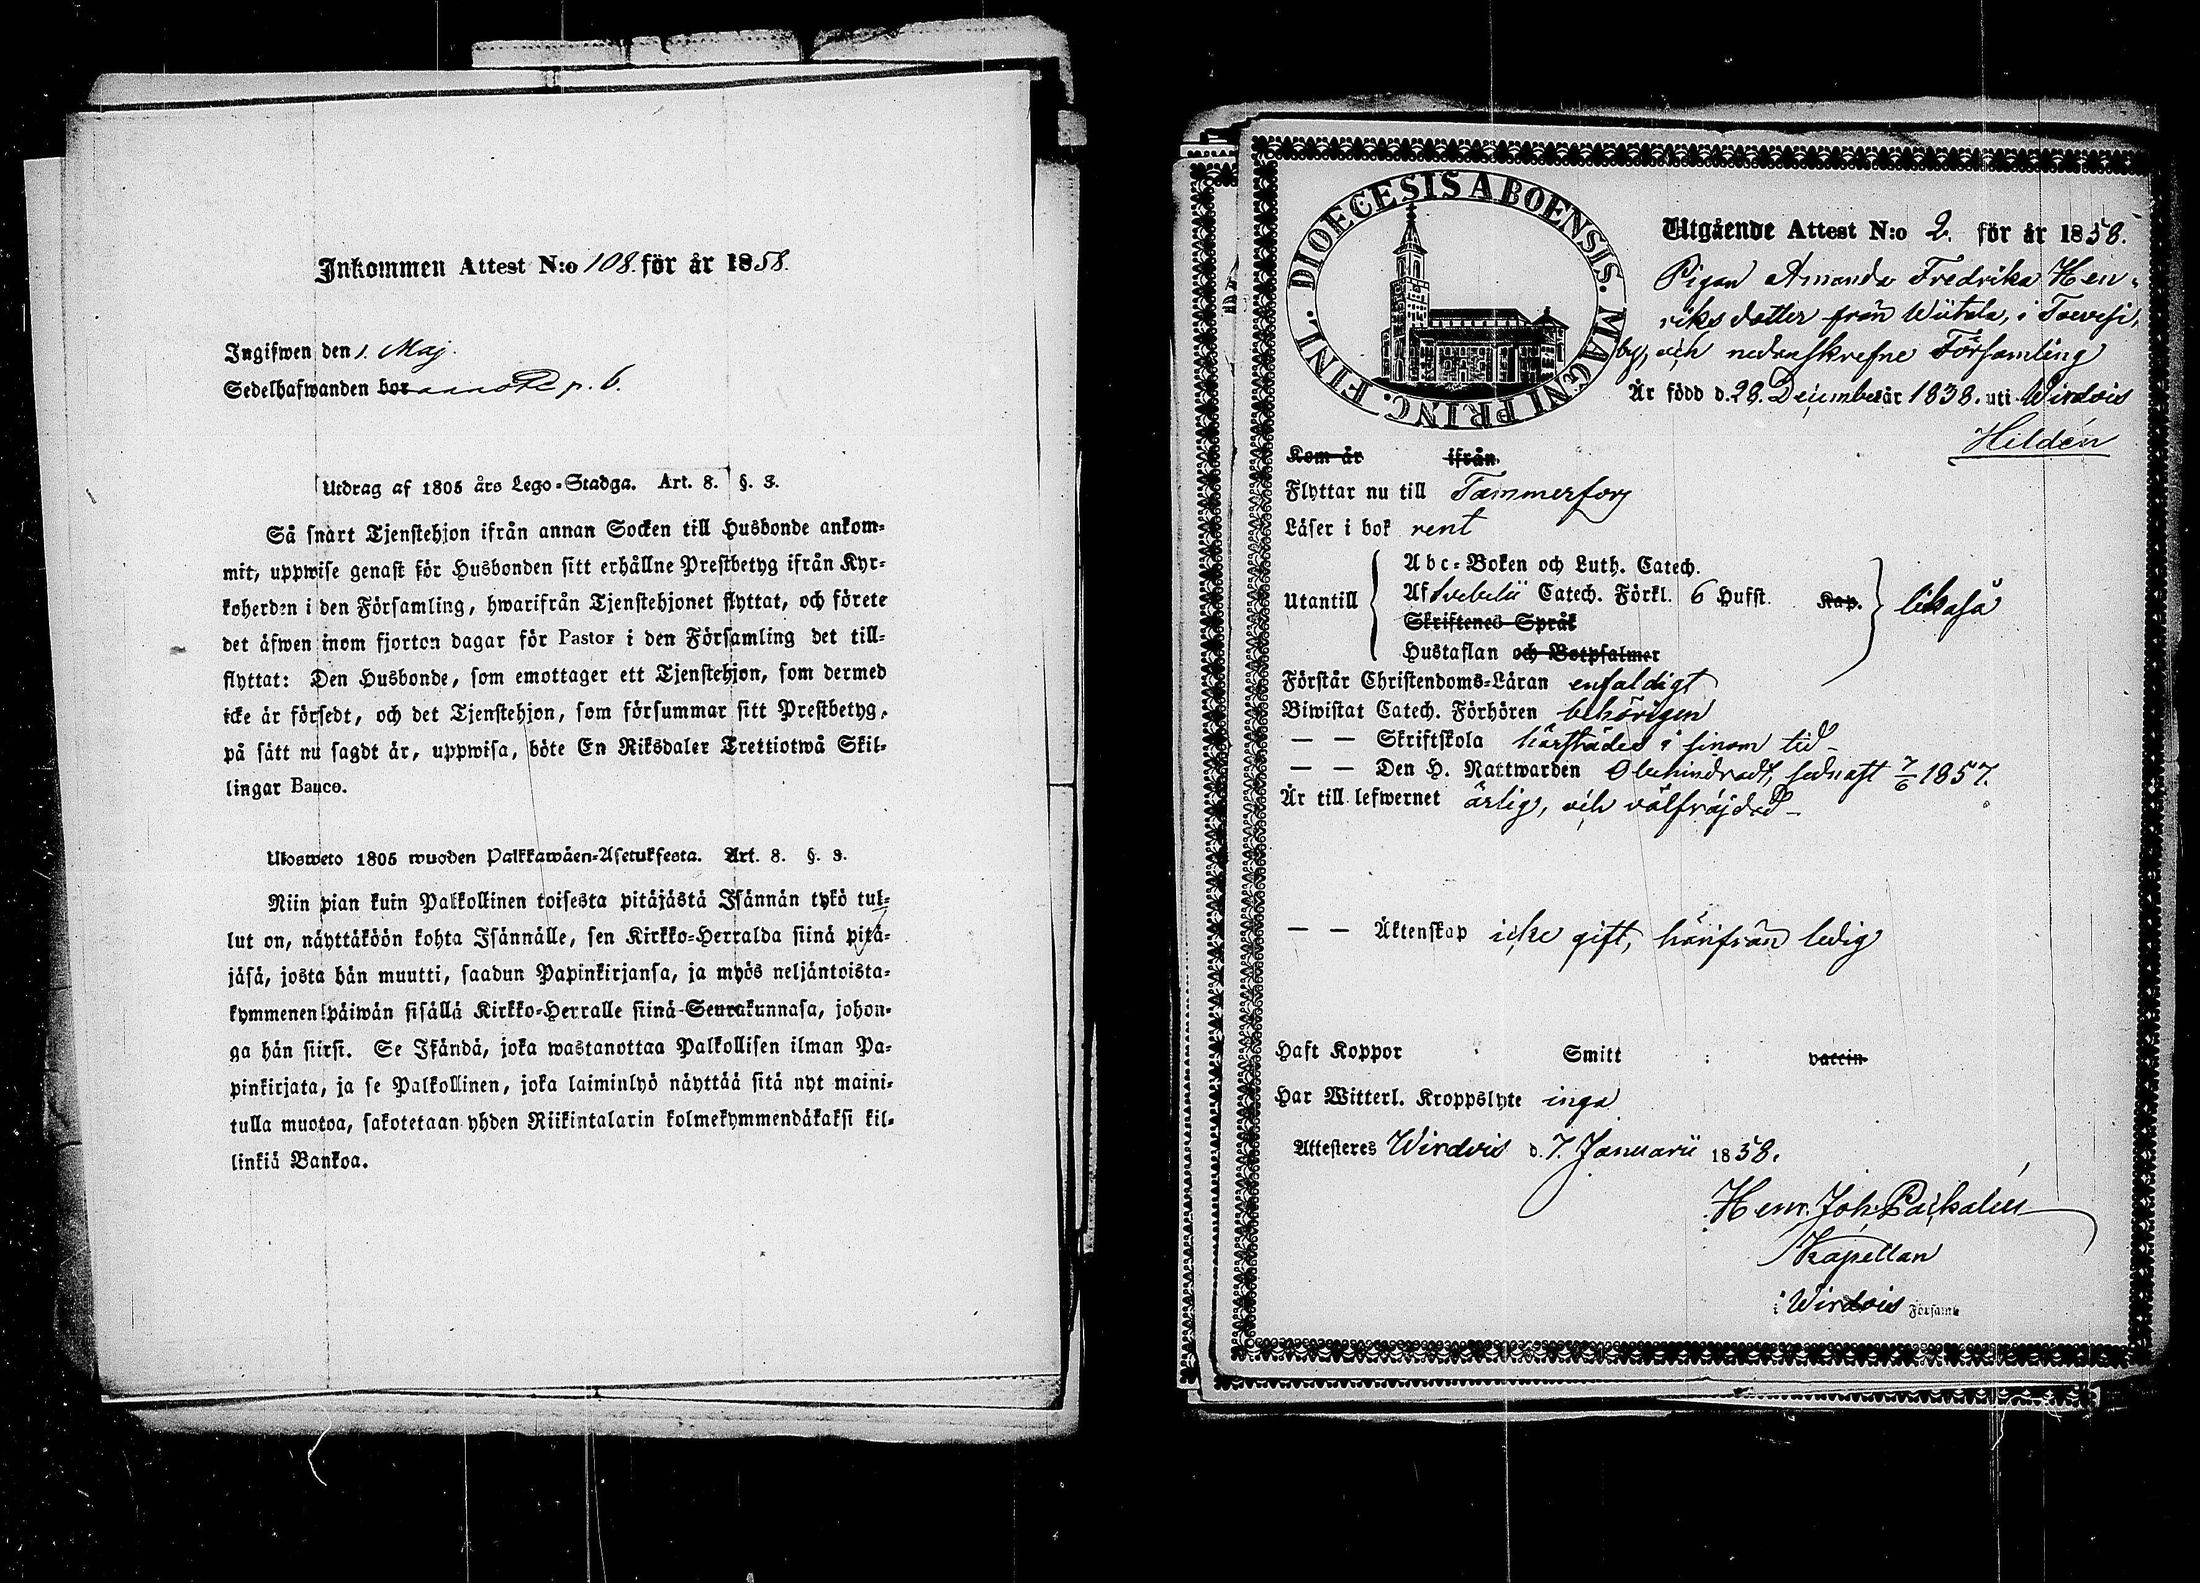 Inkommen Attest N:o 108. för år 1858.
Ingifwen den 1. Maj.
Sedelhafwanden bor p. 6.
Utdrag af 1805 års Lego-Stadga. Art. 8. §. 3.
Så snart Tjenstehjon ifrån annan Socken till Husbonde ankom-
mit, uppwise genast för Husbonden sitt erhållne Prestbetyg ifrån Kyr-
koherden i den Församling, hwarifrån Tjenstehjonet flyttat, och förete
det äfwen inom fjorton dagar för Pastor i den Församling det till-
flyttat: Den Husbonde, som emottager ett Tjenstehjon, som dermed
icke är försedt, och det Tjenstehjon, som försummar sitt Prestbetyg,
på sätt nu sagdt är, uppwisa, böte En Riksdaler Trettiotwå Skil-
lingar Banco.
Ulosweto 1805 wuoden Palkkawäen-Asetuksesta. Art. 8. §. 3.
Niin pian kuin Palkollinen toisesta pitäjästä Isännän tykö tul-
lut on, näyttäköön kohta Isännälle, sen Kirkko-Herralda siinä pitä-
jäsä, josta hän muutti, saadun Papinkirjansa, ja myös neljäntoista-
kymmenen päiwän sisällä Kirkko-Herralle siinä Seurakunnasa, johon-
ga hän siirsi. Se Isändä, joka wastanottaa Palkollisen ilman Pa-
pinkirjata, ja se Palkollinen, joka laiminlyö näyttää sitä nyt maini-
tulla muotoa, sakotetaan yhden Riikintalarin kolmekymmendäkaksi kil-
linkiä Bankoa.
DIOECESIS ABOENSIS. MAGNI PRINC. FINL.
Utgående Attest N:o 2. för år 1858.
Pigan Amanda Fredrika Hen-
riksdotter från Wiitala, i Toivesi,
by, och nedanskrefne Församling
Är född d. 28. December år 1838. uti Wirdois
Hildén
Kom år ifrån
Flyttar nu till Tammerfors
Läser i bok rent
Abc-Boken och Luth. Catech.
Utantill Af Svebelii Catech. Förkl. 6 Hufst. Kap. likaså
Skriftenes Språk
Hustaflan och Botpsalmer
Förstår Christendoms-Läran enfaldigt
Biwistat Catech. Förhören behörigen
— — Skriftskola härstädes i sinom tid
— — Den H. Nattwarden Obehindradt, sednast 7/6 1857.
Är till lefwernet ärlig, och välfräjdad
— — Äktenskap icke gift, härifrån ledig
Haft Koppor Smitt vaccin
Har Witterl. Kroppslyte inga
Attesteres Wirdois d. 7. Januarii 1858.
Henr. Joh. Packalén
Kapellan
i Wirdois Församl